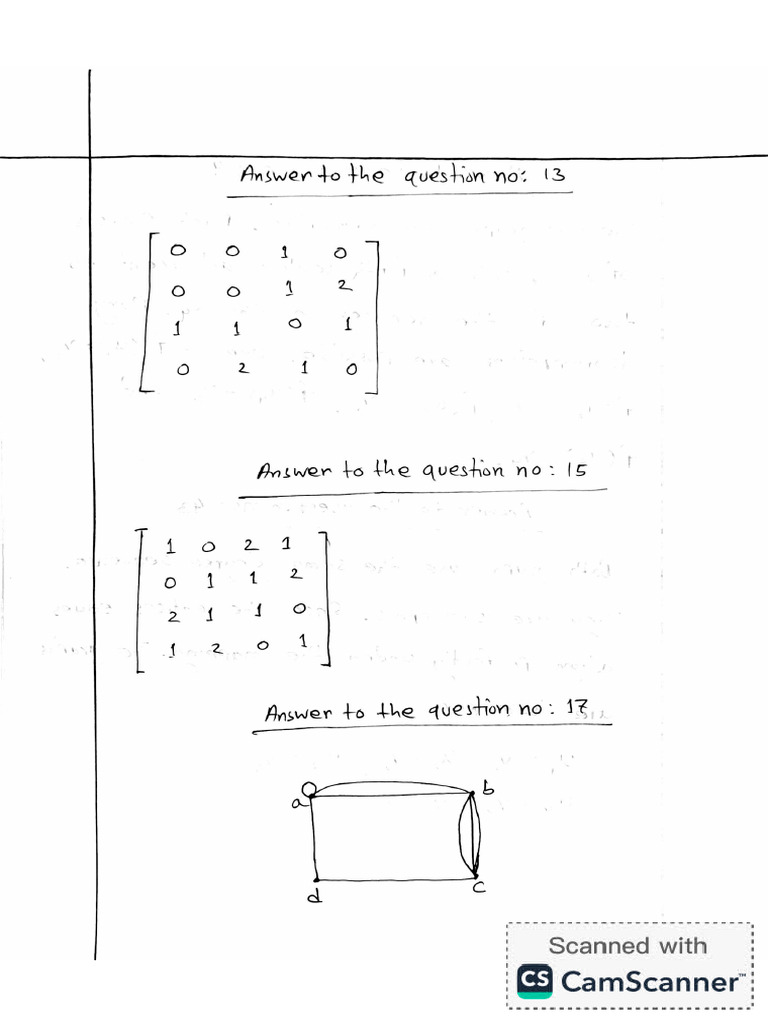 Answer to the question no: 13
0 0 1 0
0 0 1 2
1 1 0 1
0 2 1 0
Answer to the question no: 15
1 0 2 1
0 1 1 2
2 1 1 0
1 2 0 1
Answer to the question no: 17
a b
d c
Scanned with
CS CamScanner™